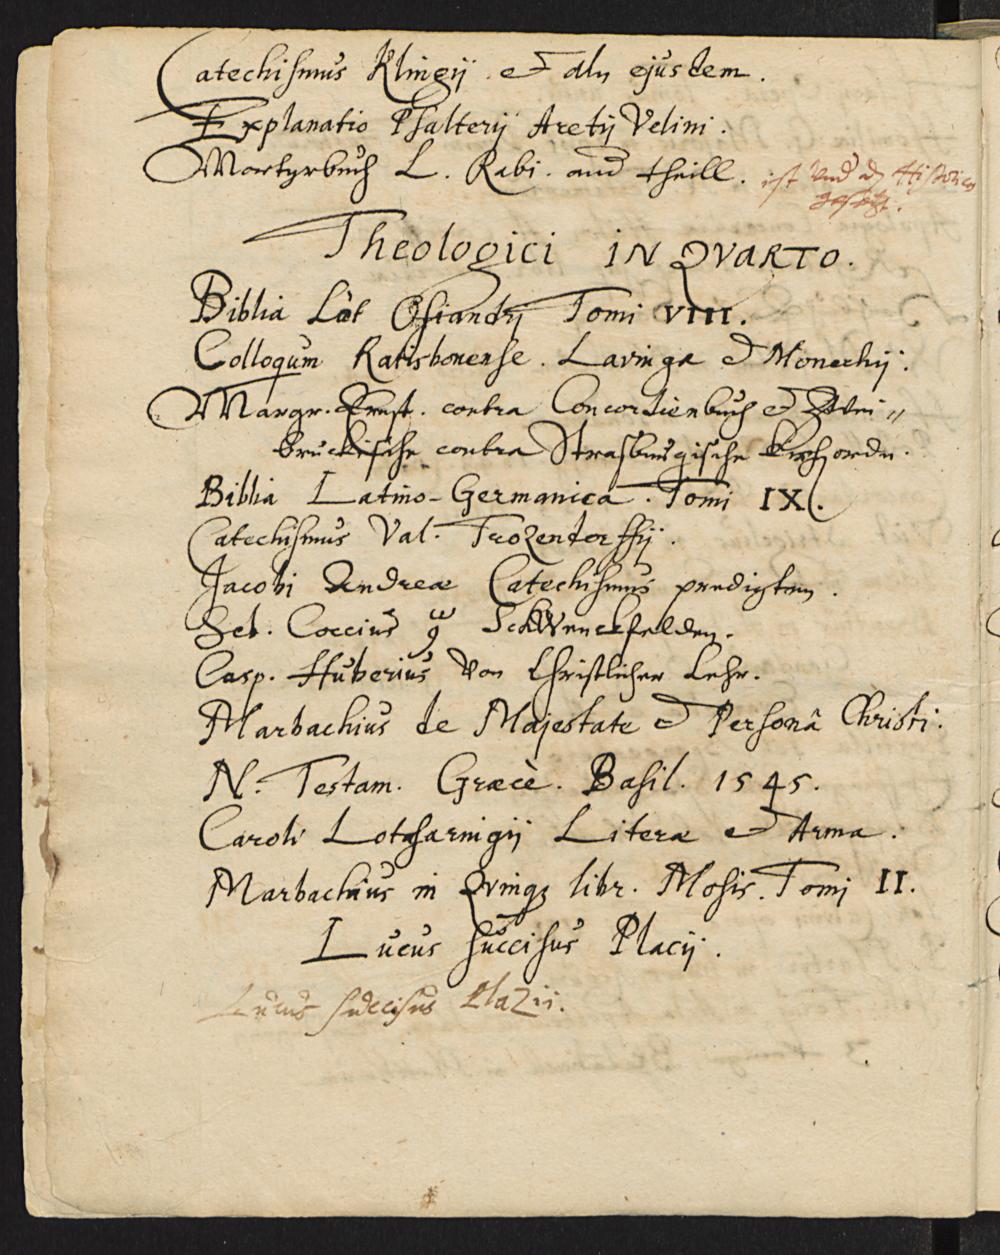 Catechismus Klingij et alij ejusdem.
Explanatio Psalterij Aretij Velini.
Martyrbuch L. Rabi. and theill. ist und den Historien
gesetzt.
Theologici IN QVARTO.
Biblia Lat Osiandrj Tomi VIII.
Colloquum Ratisbonense. Lavingæ et Monachij.
Margr. Ernst. contra Concordienbuch et Zwei„
bruckische contra Strasburgische Kirchordn.
Biblia Latino-Germanica. Tomi IX.
Catechismus Val. Trozendorffij.
Jacobi Andreæ Catechismus predigten.
Seb. Coccius Schwenckfelden.
Casp. Huberius Von Christlicher Lehr.
Marbachius de Majestate et Personâ Christi.
N. Testam. Græcè. Basil. 1545.
Caroli Lotharnigij Literæ et Arma.
Marbachius in Qvinq libr. Mosis. Tomj II.
Lucus succisus Placij.
Lucus succisus Plazii.